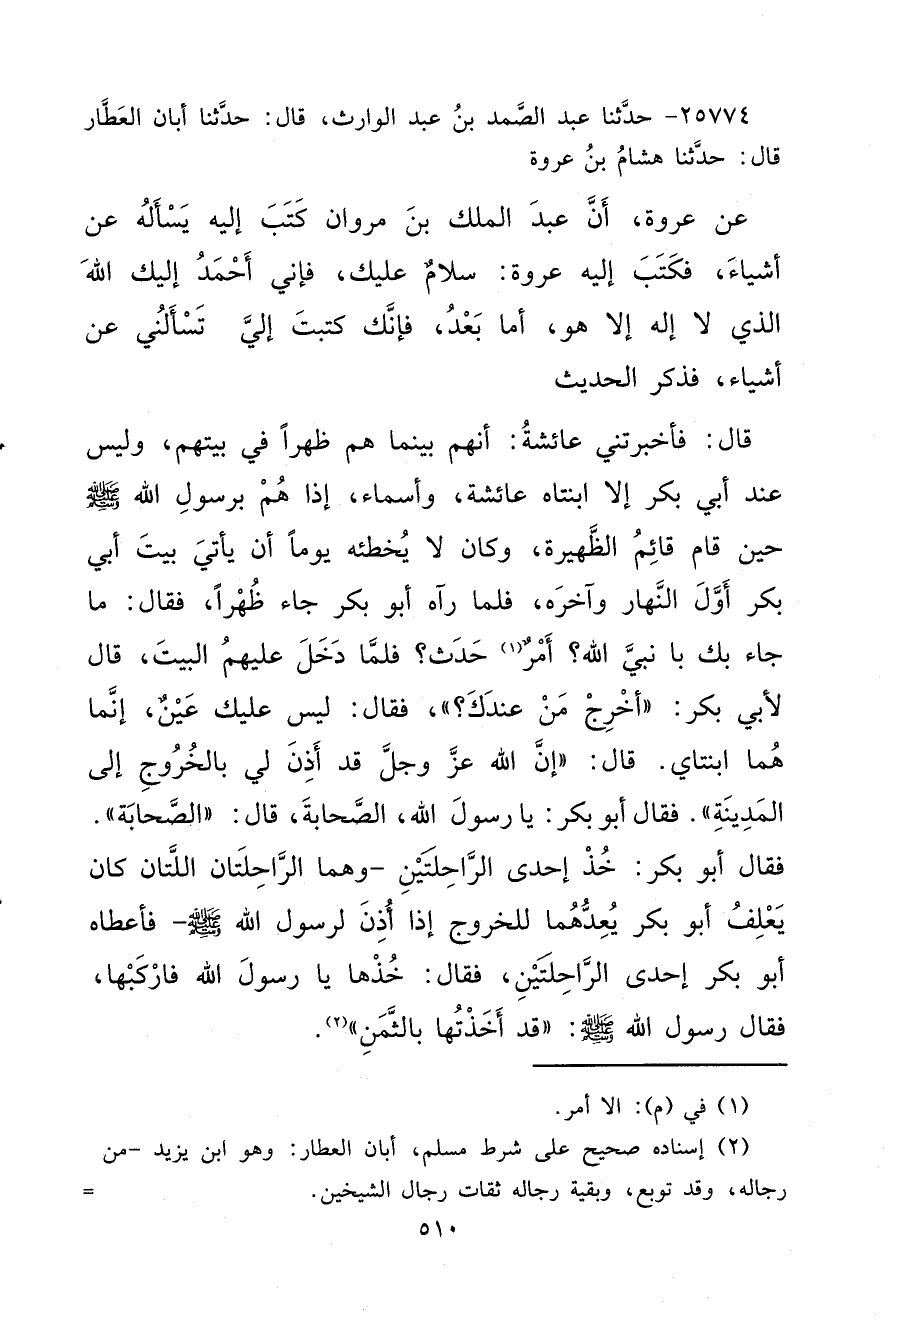 ٢٥٧٧٤- حدَّثنا عبد الصَّمد بنُ عبد الوارث، قال: حدَّثنا أبان العَطَّار
قال: حدَّثنا هشامُ بنُ عروة
عن عروة، أَنَّ عبدَ الملك بنَ مروان كَتَبَ إليه يَسْأَلُهُ عن
أشياءَ، فكَتَبَ إليه عروة: سلامٌ عليك، فإني أَحْمَدُ إليك اللهَ
الذي لا إله إلا هو، أما بَعْدُ، فإنَّك كتبتَ إليَّ تَسْأَلُني عن
أشياء، فذكر الحديث
قال: فأخبرتني عائشةُ: أنهم بينما هم ظهراً في بيتهم، وليس
عند أبي بكر إلا ابنتاه عائشة، وأسماء، إذا هُمْ برسولِ الله ﷺ
حين قام قائِمُ الظَّهيرة، وكان لا يُخطئه يوماً أن يأتيَ بيتَ أبي
بكر أَوَّلَ النَّهار وآخرَه، فلما رآه أبو بكر جاء ظُهْراً، فقال: ما
جاء بك با نبيَّ الله؟ أَمْرٌ(١) حَدَث؟ فلمَّا دَخَلَ عليهمُ البيتَ، قال
لأبي بكر: «أخْرِجْ مَنْ عندَكَ؟»، فقال: ليس عليك عَيْنٌ، إنَّما
هُما ابنتاي. قال: «إنَّ الله عزَّ وجلَّ قد أَذِنَ لي بالخُرُوجِ إلى
المَدِينَةِ». فقال أبو بكر: يا رسولَ الله، الصَّحابةَ، قال: «الصَّحابَة».
فقال أبو بكر: خُذْ إحدى الرَّاحِلتَيْنِ -وهما الرَّاحِلتَان اللَّتان كان
يَعْلِفُ أبو بكر يُعِدُّهُما للخروج إذا أُذِنَ لرسول الله ﷺ- فأعطاه
أبو بكر إحدى الرَّاحلتَيْنِ، فقال: خُذْها يا رسولَ الله فارْكَبْها،
فقال رسول الله ﷺ: «قد أَخَذْتُها بالثَّمَنِ»(٢).
(١) في (م): الا أمر.
(٢) إسناده صحيح على شرط مسلم، أبان العطار: وهو ابن يزيد -من
رجاله، وقد توبع، وبقية رجاله ثقات رجال الشيخين. =
٥١٠